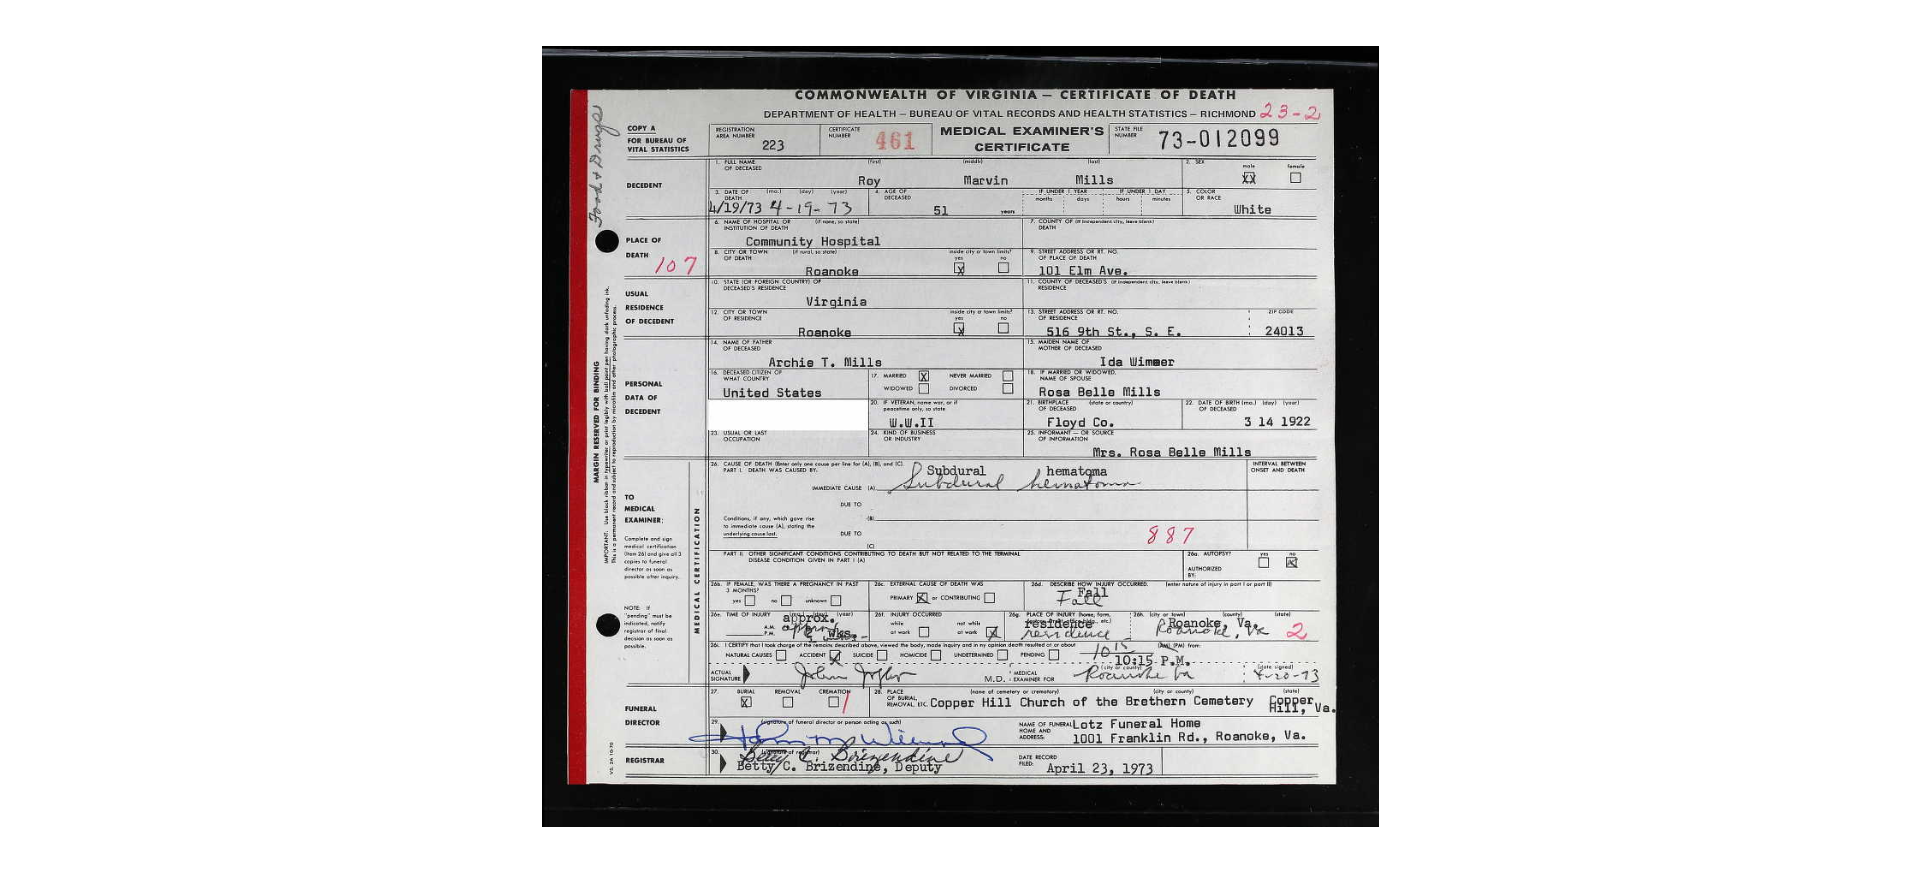 COMMONWEALTH OF VIRGINIA — CERTIFICATE OF DEATH
DEPARTMENT OF HEALTH — BUREAU OF VITAL RECORDS AND HEALTH STATISTICS — RICHMOND 23-2
COPY A
FOR BUREAU OF
VITAL STATISTICS
REGISTRATION
AREA NUMBER 223
CERTIFICATE
NUMBER 461
MEDICAL EXAMINER'S
CERTIFICATE
STATE FILE
NUMBER 73-012099
DECEDENT
1. FULL NAME (first) (middle) (last)
OF DECEASED
Roy Marvin Mills
2. SEX male female
XX
3. DATE OF (mo.) (day) (year)
DEATH
4/19/73 4-19-73
4. AGE OF
DECEASED
51 years
IF UNDER 1 YEAR IF UNDER 1 DAY
months days hours minutes
5. COLOR
OR RACE
White
PLACE OF
DEATH
107
6. NAME OF HOSPITAL OR (if none, so state)
INSTITUTION OF DEATH
Community Hospital
7. COUNTY OF (if independent city, leave blank)
DEATH
8. CITY OR TOWN (if rural, so state) inside city or town limits?
OF DEATH yes no
Roanoke X
9. STREET ADDRESS OR RT. NO.
OF PLACE OF DEATH
101 Elm Ave.
USUAL
RESIDENCE
OF DECEDENT
10. STATE (OR FOREIGN COUNTRY) OF
DECEASED'S RESIDENCE
Virginia
11. COUNTY OF DECEASED'S (if independent city, leave blank)
RESIDENCE
12. CITY OR TOWN inside city or town limits?
OF RESIDENCE yes no
Roanoke X
13. STREET ADDRESS OR RT. NO. ZIP CODE
OF RESIDENCE
516 9th St., S. E. 24013
PERSONAL
DATA OF
DECEDENT
14. NAME OF FATHER
OF DECEASED
Archie T. Mills
15. MAIDEN NAME OF
MOTHER OF DECEASED
Ida Wimmer
16. DECEASED CITIZEN OF
WHAT COUNTRY
United States
17. MARRIED X NEVER MARRIED
WIDOWED DIVORCED
18. IF MARRIED OR WIDOWED,
NAME OF SPOUSE
Rosa Belle Mills
20. IF VETERAN, name war, or if
peacetime only, so state
W.W.II
21. BIRTHPLACE (state or country)
OF DECEASED
Floyd Co.
22. DATE OF BIRTH (mo.) (day) (year)
OF DECEASED
3 14 1922
23. USUAL OR LAST
OCCUPATION
24. KIND OF BUSINESS
OR INDUSTRY
25. INFORMANT — OR SOURCE
OF INFORMATION
Mrs. Rosa Belle Mills
TO
MEDICAL
EXAMINER:
Complete and sign
medical certification
(item 26) and give all 3
copies to funeral
director as soon as
possible after inquiry.
NOTE: If
"pending" must be
indicated, notify
registrar of final
decision as soon as
possible.
MEDICAL CERTIFICATION
26. CAUSE OF DEATH (Enter only one cause per line for (A), (B), and (C).
PART I. DEATH WAS CAUSED BY:
INTERVAL BETWEEN
ONSET AND DEATH
Subdural hematoma
IMMEDIATE CAUSE (A) Subdural hematoma
DUE TO
Conditions, if any, which gave rise
to immediate cause (A), stating the
underlying cause last.
(B)
DUE TO
887
(C)
PART II. OTHER SIGNIFICANT CONDITIONS CONTRIBUTING TO DEATH BUT NOT RELATED TO THE TERMINAL
DISEASE CONDITION GIVEN IN PART I (A)
26a. AUTOPSY? yes no
AUTHORIZED X
BY:
26b. IF FEMALE, WAS THERE A PREGNANCY IN PAST
3 MONTHS?
yes no unknown
26c. EXTERNAL CAUSE OF DEATH WAS
PRIMARY X or CONTRIBUTING
26d. DESCRIBE HOW INJURY OCCURRED. (enter nature of injury in part I or part II)
Fall
Fall
26e. TIME OF INJURY (mo.) (day) (year)
A.M.
P.M.
approx.
wks.
26f. INJURY OCCURRED
while not while
at work at work X
26g. PLACE OF INJURY (home, farm,
residence
residence
26h. (city or town) (county) (state)
Roanoke, Va.
Roanoke, Va 2
26i. I CERTIFY that I took charge of the remains described above, viewed the body, made inquiry and in my opinion death resulted at or about
10 15
(AM) (PM) from:
NATURAL CAUSES ACCIDENT X SUICIDE HOMICIDE UNDETERMINED PENDING
10:15 P.M.
ACTUAL
SIGNATURE
John
M.D.
MEDICAL
EXAMINER FOR
(city or county)
Roanoke Va
(date signed)
4-20-73
FUNERAL
DIRECTOR
27. BURIAL REMOVAL CREMATION
X
28. PLACE (name of cemetery or crematory) (city or county) (state)
OF BURIAL,
REMOVAL, ETC. Copper Hill Church of the Brethern Cemetery Copper
Hill, Va.
29. (signature of funeral director or person acting as such)
NAME OF FUNERAL Lotz Funeral Home
HOME AND
ADDRESS: 1001 Franklin Rd., Roanoke, Va.
REGISTRAR
30. (signature of registrar)
Betty C. Brizendine
Betty C. Brizendine, Deputy
DATE RECORD
FILED: April 23, 1973
MARGIN RESERVED FOR BINDING